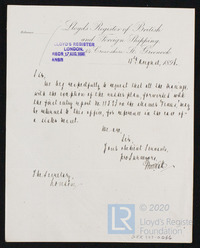 Lloyd's Register of British
and Foreign Shipping,
Greenock
August, 1891.
LLOYD'S REGISTER
LONDON.
Sir,
We beg respectfully to request that all the drawings,
with the exception of the midship plan, forwarded with
the first entry report No on the steamer may
be returned to this office, for reference in the case of
a sister vessel.
We are,
Sir,
Your obedient Servants,
The Secretary,
London.
© 2020
Lloyd's Register
Foundation